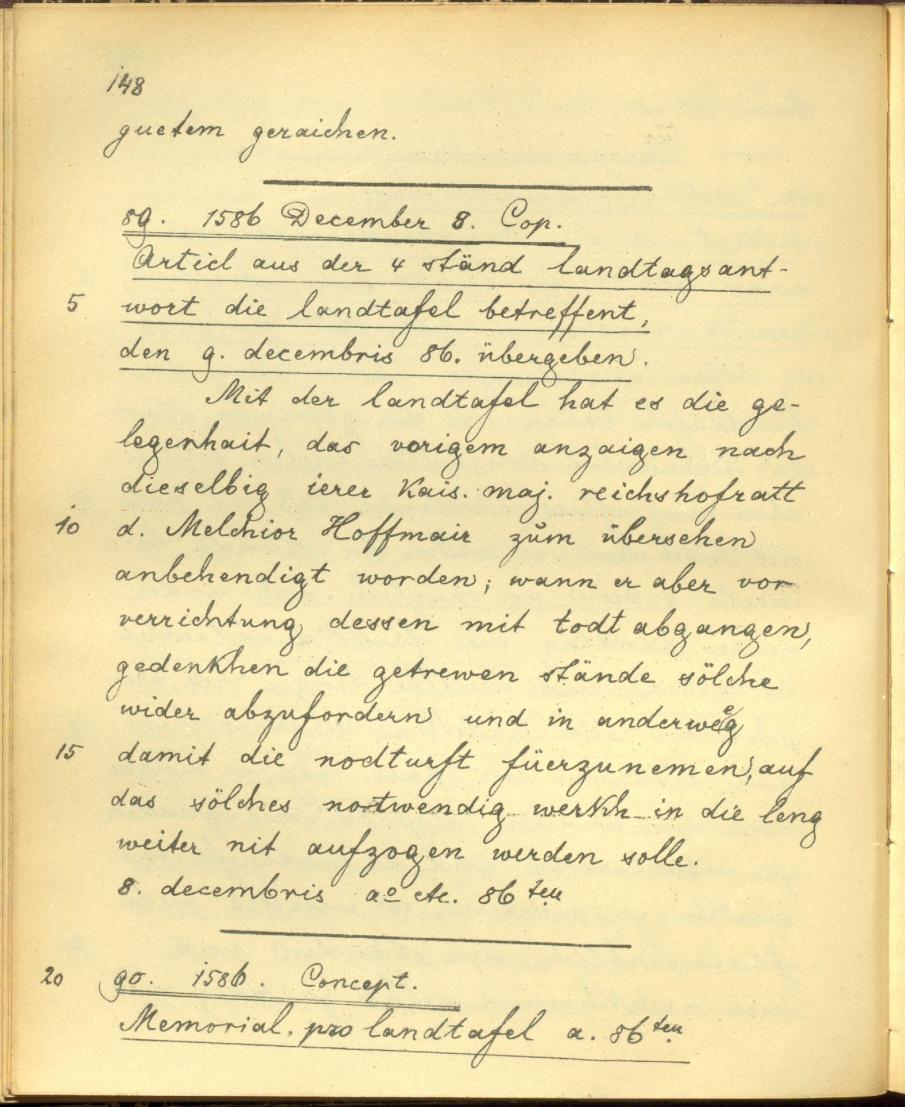 148
guetem geraichen.
89. 1586 December 8. Cop.
Articl aus der 4 ständ landtagsant-
5 wort die landtafel betreffent,
den 9. decembris 86. übergeben.
Mit der landtafel hat es die ge-
legenhait, das vorigem anzaigen nach
dieselbig ierer Kais. maj. reichshofratt
10 d. Melchior Hoffmair zum übersehen
anbehendigt worden; wann er aber vor
verrichtung dessen mit todt abgangen,
gedenkhen die getrewen stände sölche
wider abzufordern und in anderweg
15 damit die nodturft füerzunemen, auf
das sölches notwendig werkh in die leng
weiter nit aufzogen werden solle.
8. decembris aº etc. 86ten
20 90. 1586. Concept.
Memorial. pro landtafel a. 86ten.